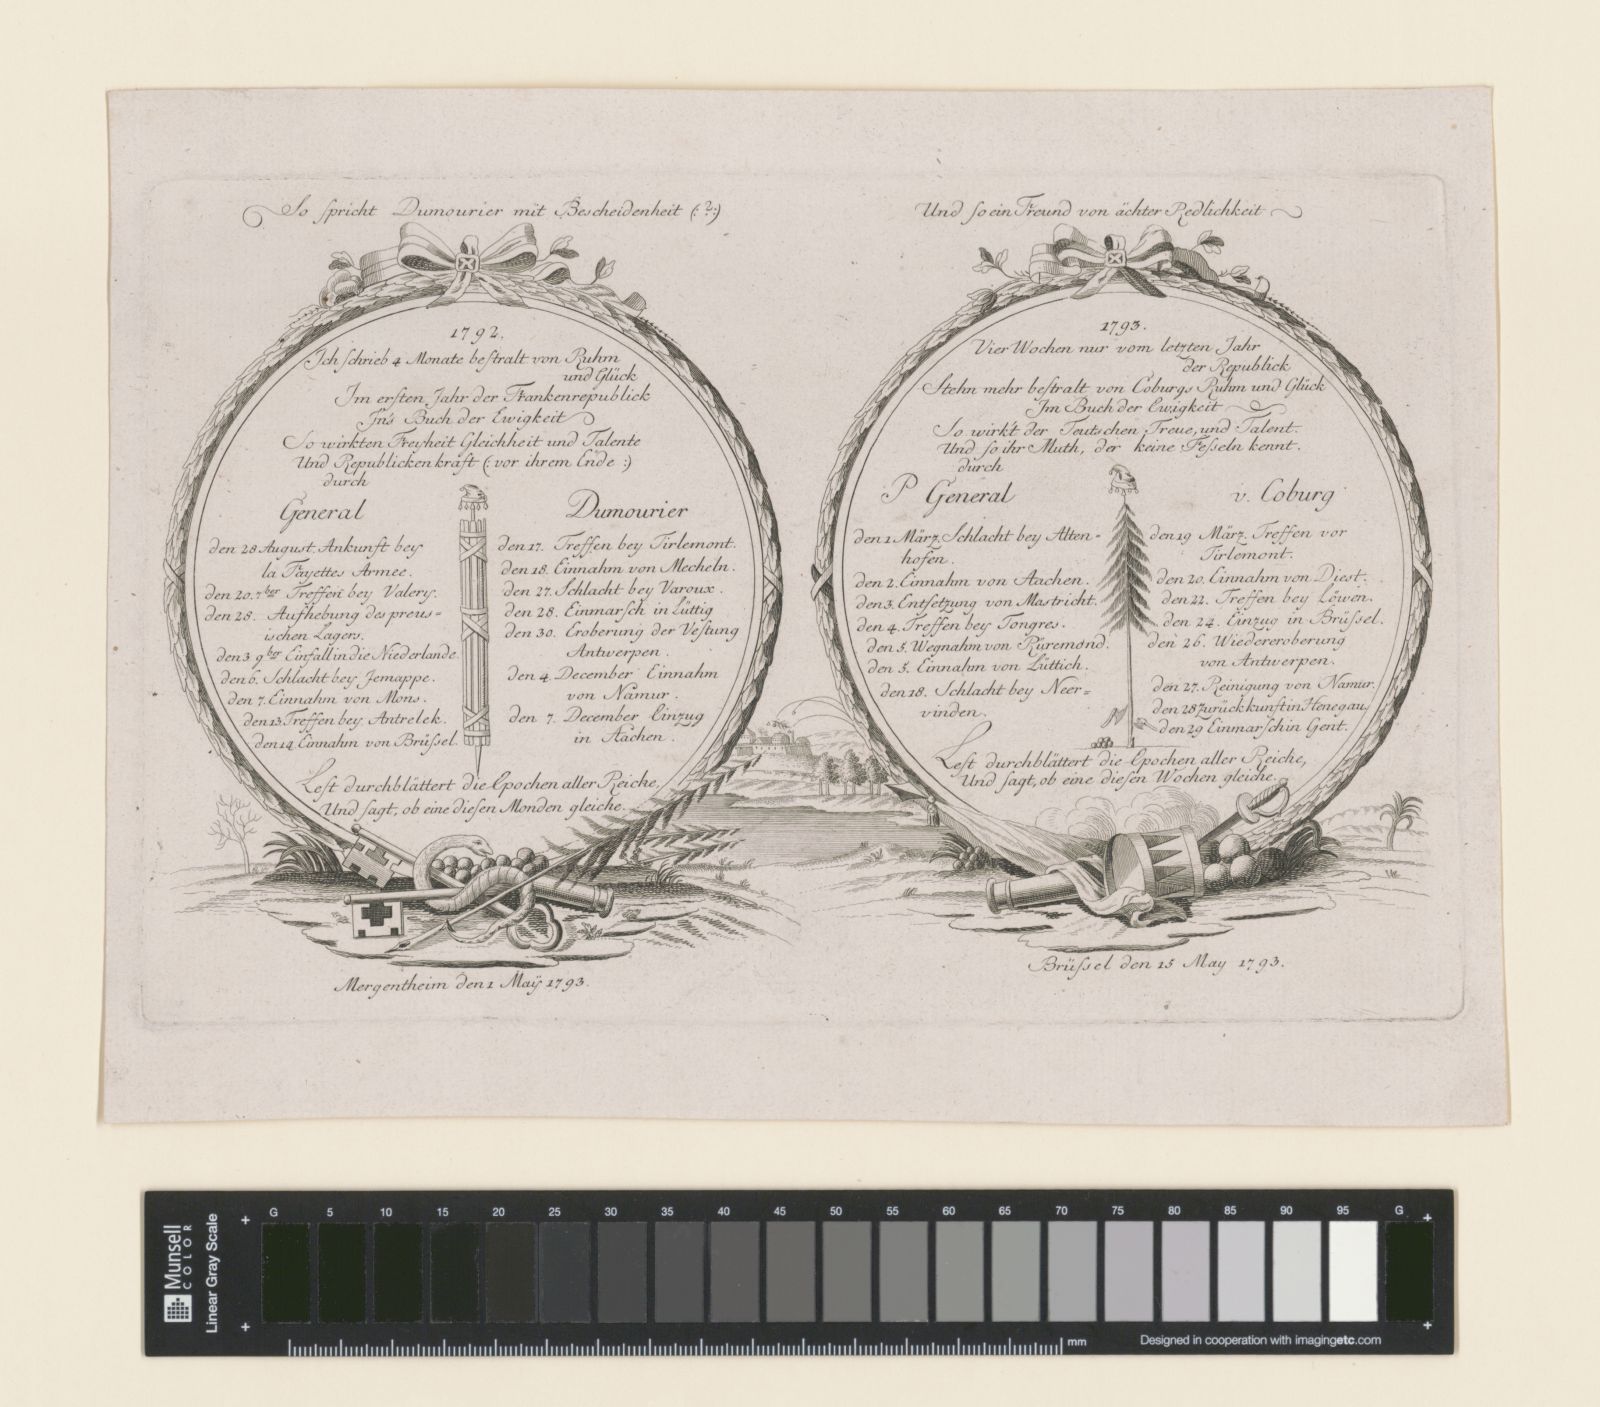 So spricht Dumourier mit Bescheidenheit (:?:)
1792.
Ich schrieb 4 Monate bestralt von Ruhm
und Glück
Im ersten Jahr der Frankenrepublick
In's Buch der Ewigkeit
So wirkten Freyheit Gleichheit und Talente
Und Republickenkraft (: vor ihrem Ende :)
durch
General Dumourier
den 28 August. Ankunft bey
la Fayettes Armee.
den 20. 7ber Treffen bey Valery.
den 28. Aufhebung des preus=
ischen Lagers.
den 3 9ber Einfall in die Niederlande.
den 6. Schlacht bey Jemappe.
den 7. Einnahm von Mons.
den 13. Treffen bey Antrelek.
den 14. Einnahm von Brüssel.
den 17. Treffen bey Tirlemont.
den 18. Einnahm von Mecheln.
den 27. Schlacht bey Varoux.
den 28. Einmarsch in Lüttig
den 30. Eroberung der Vestung
Antwerpen.
den 4. December Einnahm
von Namur.
den 7. December Einzug
in Aachen.
Lest durchblättert die Epochen aller Reiche,
Und sagt, ob eine diesen Monden gleiche.
Mergentheim den 1 Maÿ 1793.
Und so ein Freund von ächter Redlichkeit
1793.
Vier Wochen nur vom letzten Jahr
der Republick
Stehn mehr bestralt von Coburgs Ruhm und Glück
Im Buch der Ewigkeit
So wirkt der Teutschen Treue, und Talent.
Und so ihr Muth, der keine Fesseln kennt.
durch
P General v. Coburg
den 1 März. Schlacht bey Alten-
hofen.
den 2. Einnahm von Aachen.
den 3. Entsetzung von Mastricht.
den 4. Treffen bey Tongres.
den 5. Wegnahm von Rüremond.
den 5. Einnahm von Lüttich.
den 18. Schlacht bey Neer=
vinden.
den 19 März. Treffen vor
Tirlemont.
den 20. Einnahm von Diest.
den 22. Treffen bey Löwen.
den 24. Einzug in Brüssel.
den 26. Wiedereroberung
von Antwerpen.
den 27. Reinigung von Namur.
den 28 Zurückkunft in Henegau,
den 29 Einmarsch in Gent.
Lest durchblättert die Epochen aller Reiche,
Und sagt, ob eine diesen Wochen gleiche.
Brüssel den 15 May 1793.
Munsell
COLOR
Linear Gray Scale
G 5 10 15 20 25 30 35 40 45 50 55 60 65 70 75 80 85 90 95 G
mm
Designed in cooperation with imagingetc.com